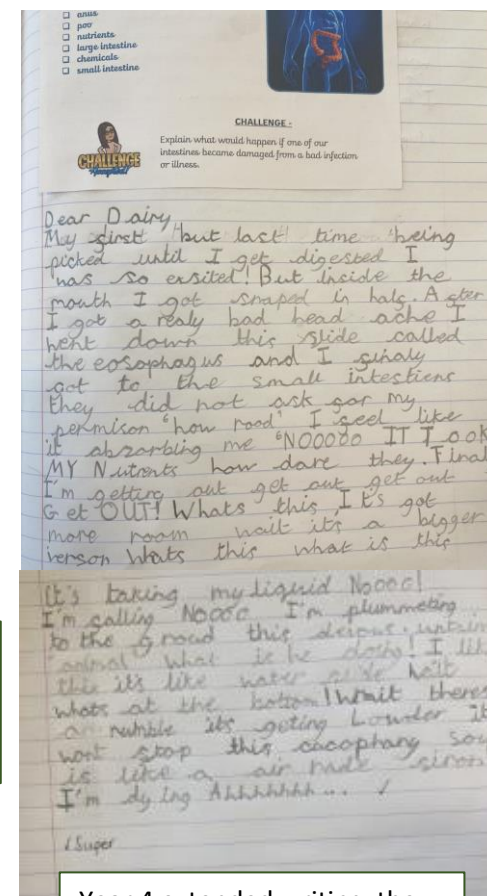 anus
poo
nutrients
large intestine
chemicals
small intestine
CHALLENGE -
Explain what would happen if one of our
intestines became damaged from a bad infection
or illness.
CHALLENGE
Accepted!
Dear Dairy
My first but last time being
picked until I get digested I
was so exsited! But inside the
mouth I got snaped in half. After
I got a realy bad head ache I
went down this slide called
the eosophagus and I finaly
got to the small intestiens
they did not ask for my
permison "how rood" I feel like
it absorbing me "NOOOOO IT Took
MY Nutrents how dare they. Final
I'm getting out get out get out
Get OUT! Whats this It's got
more room wait its a bigger
verson Whats this what is this
It's taking my liquid Nooo!
I'm falling Nooo I'm plummeting
to the groud this
animal what is he doing! I lik
this it's like water slide
whats at the bottom! Wait theres
a rumble its geting Louder it
wont stop this cacophany
is like a air siron
I'm dying Ahhhhhhh...
Super
Year 4 extended writing the